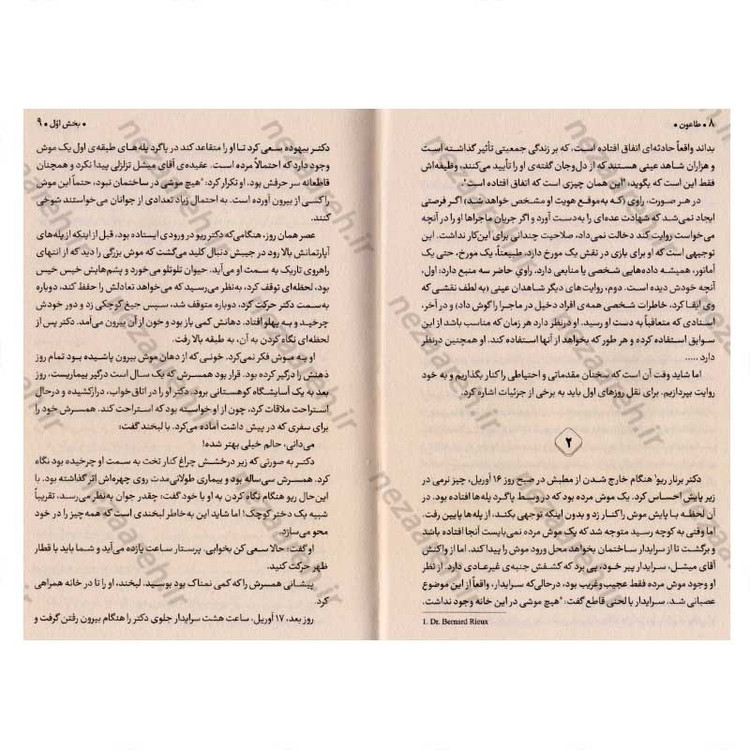 ۸ • طاعون •
بداند واقعاً حادثه‌ای اتفاق افتاده است، که بر زندگی جمعیتی تأثیر گذاشته است
و هزاران شاهد عینی هستند که از دل‌وجان گفته‌ی او را تأیید می‌کنند، وظیفه‌اش
فقط این است که بگوید: "این همان چیزی است که اتفاق افتاده است".
در هر صورت، راوی (که به‌موقع هویت او مشخص خواهد شد) اگر فرصتی
ایجاد نمی‌شد که شهادت عده‌ای را به‌دست آورد و اگر جریان ماجراها او را در آنچه
می‌خواست روایت کند دخالت نمی‌داد، صلاحیت چندانی برای این‌کار نداشت. این
توجیهی است که او برای بازی در نقش یک مورخ دارد. طبیعتاً، یک مورخ، حتی یک
آماتور، همیشه داده‌هایی شخصی یا منابعی دارد. راوی حاضر سه منبع دارد: اول،
آنچه خودش دیده است. دوم، روایت‌های دیگر شاهدان عینی (به لطف نقشی که
وی ایفا کرد، خاطرات شخصی همه‌ی افراد دخیل در ماجرا را گوش داد) و در آخر،
اسنادی که متعاقباً به دست او رسید. او درنظر دارد هر زمان که مناسب باشد از این
سوابق استفاده کرده و هر طور که بخواهد از آنها استفاده کند. او همچنین درنظر
دارد .....
اما شاید وقت آن است که سخنان مقدماتی و احتیاطی را کنار بگذاریم و به خود
روایت بپردازیم. برای نقل روزهای اول باید به برخی از جزئیات اشاره کرد.
۲
دکتر برنار ریو¹ هنگام خارج شدن از مطبش در صبح روز ۱۶ آوریل، چیز نرمی در
زیر پایش احساس کرد. یک موش مرده بود که در وسط پاگرد پله‌ها افتاده بود. در
آن لحظه با پایش موش را کنار زد و بدون اینکه توجهی بکند، از پله‌ها پایین رفت.
اما وقتی به کوچه رسید متوجه شد که یک موش مرده نمی‌بایست آنجا افتاده باشد
و برگشت تا از سرایدار ساختمان بخواهد محل ورود موش را پیدا کند. اما از واکنش
آقای میشل، سرایدار پیر خود، پی برد که کشفش جنبه‌ی غیرعادی دارد. از نظر
او وجود موش مرده فقط عجیب‌وغریب بود، درحالی‌که سرایدار، واقعاً از این موضوع
عصبانی شد. سرایدار با لحنی قاطع گفت: "هیچ موشی در این خانه وجود نداشت.
1. Dr. Bernard Rieux
• بخش اوّل • ۹
دکتر بیهوده سعی کرد تا او را متقاعد کند در پاگرد پله‌های طبقه‌ی اول یک موش
وجود دارد که احتمالاً مرده است. عقیده‌ی آقای میشل تزلزلی پیدا نکرد و همچنان
قاطعانه سر حرفش بود. او تکرار کرد: "هیچ موشی در ساختمان نبود، حتماً این موش
را کسی از بیرون آورده است. به احتمال زیاد تعدادی از جوانان می‌خواستند شوخی
کنند.
عصر همان روز، هنگامی‌که دکتر ریو در ورودی ایستاده بود، قبل از اینکه از پله‌های
آپارتمانش بالا رود در جیبش دنبال کلید می‌گشت که موش بزرگی را دید که از انتهای
راهروی تاریک به سمت او می‌آید. حیوان تلوتلو می‌خورد و پشم‌هایش خیس خیس
بود، لحظه‌ای توقف کرد، به‌نظر می‌رسید که می‌خواهد تعادلش را حفظ کند، دوباره
به‌سمت دکتر حرکت کرد، دوباره متوقف شد، سپس جیغ کوچکی زد و دور خودش
چرخید و به پهلو افتاد. دهانش کمی باز بود و خون از آن بیرون می‌آمد. دکتر پس از
لحظه‌ای نگاه کردن به آن، به طبقه بالا رفت.
او به موش فکر نمی‌کرد. خونی که از دهان موش بیرون پاشیده بود تمام روز
ذهنش را درگیر کرده بود. قرار بود همسرش که یک سال است درگیر بیماریست، روز
بعد به یک آسایشگاه کوهستانی برود. دکتر او را در اتاق‌خواب، درازکشیده و درحال
استراحت ملاقات کرد، چون از او خواسته بود که استراحت کند. همسرش خود را
برای سفری که در پیش داشت آماده می‌کرد. با لبخند گفت:
می‌دانی، حالم خیلی بهتر شده!
دکتر به صورتی که زیر درخشش چراغ کنار تخت به سمت او چرخیده بود نگاه
کرد. همسرش سی‌ساله بود و بیماری طولانی‌مدت روی چهره‌اش اثر گذاشته بود. با
این‌حال ریو هنگام نگاه کردن به او با خود گفت: چقدر جوان به‌نظر می‌رسد، تقریباً
شبیه یک دختر کوچک! اما شاید این به‌خاطر لبخندی است که همه‌چیز را در خود
محو می‌سازد.
او گفت: حالا سعی کن بخوابی. پرستار ساعت یازده می‌آید و شما باید با قطار
ظهر حرکت کنید.
پیشانی همسرش را که کمی نمناک بود بوسید. لبخند، او را تا در خانه همراهی
کرد.
روز بعد، ۱۷ آوریل، ساعت هشت سرایدار جلوی دکتر را هنگام بیرون رفتن گرفت و
nezaareh.ir